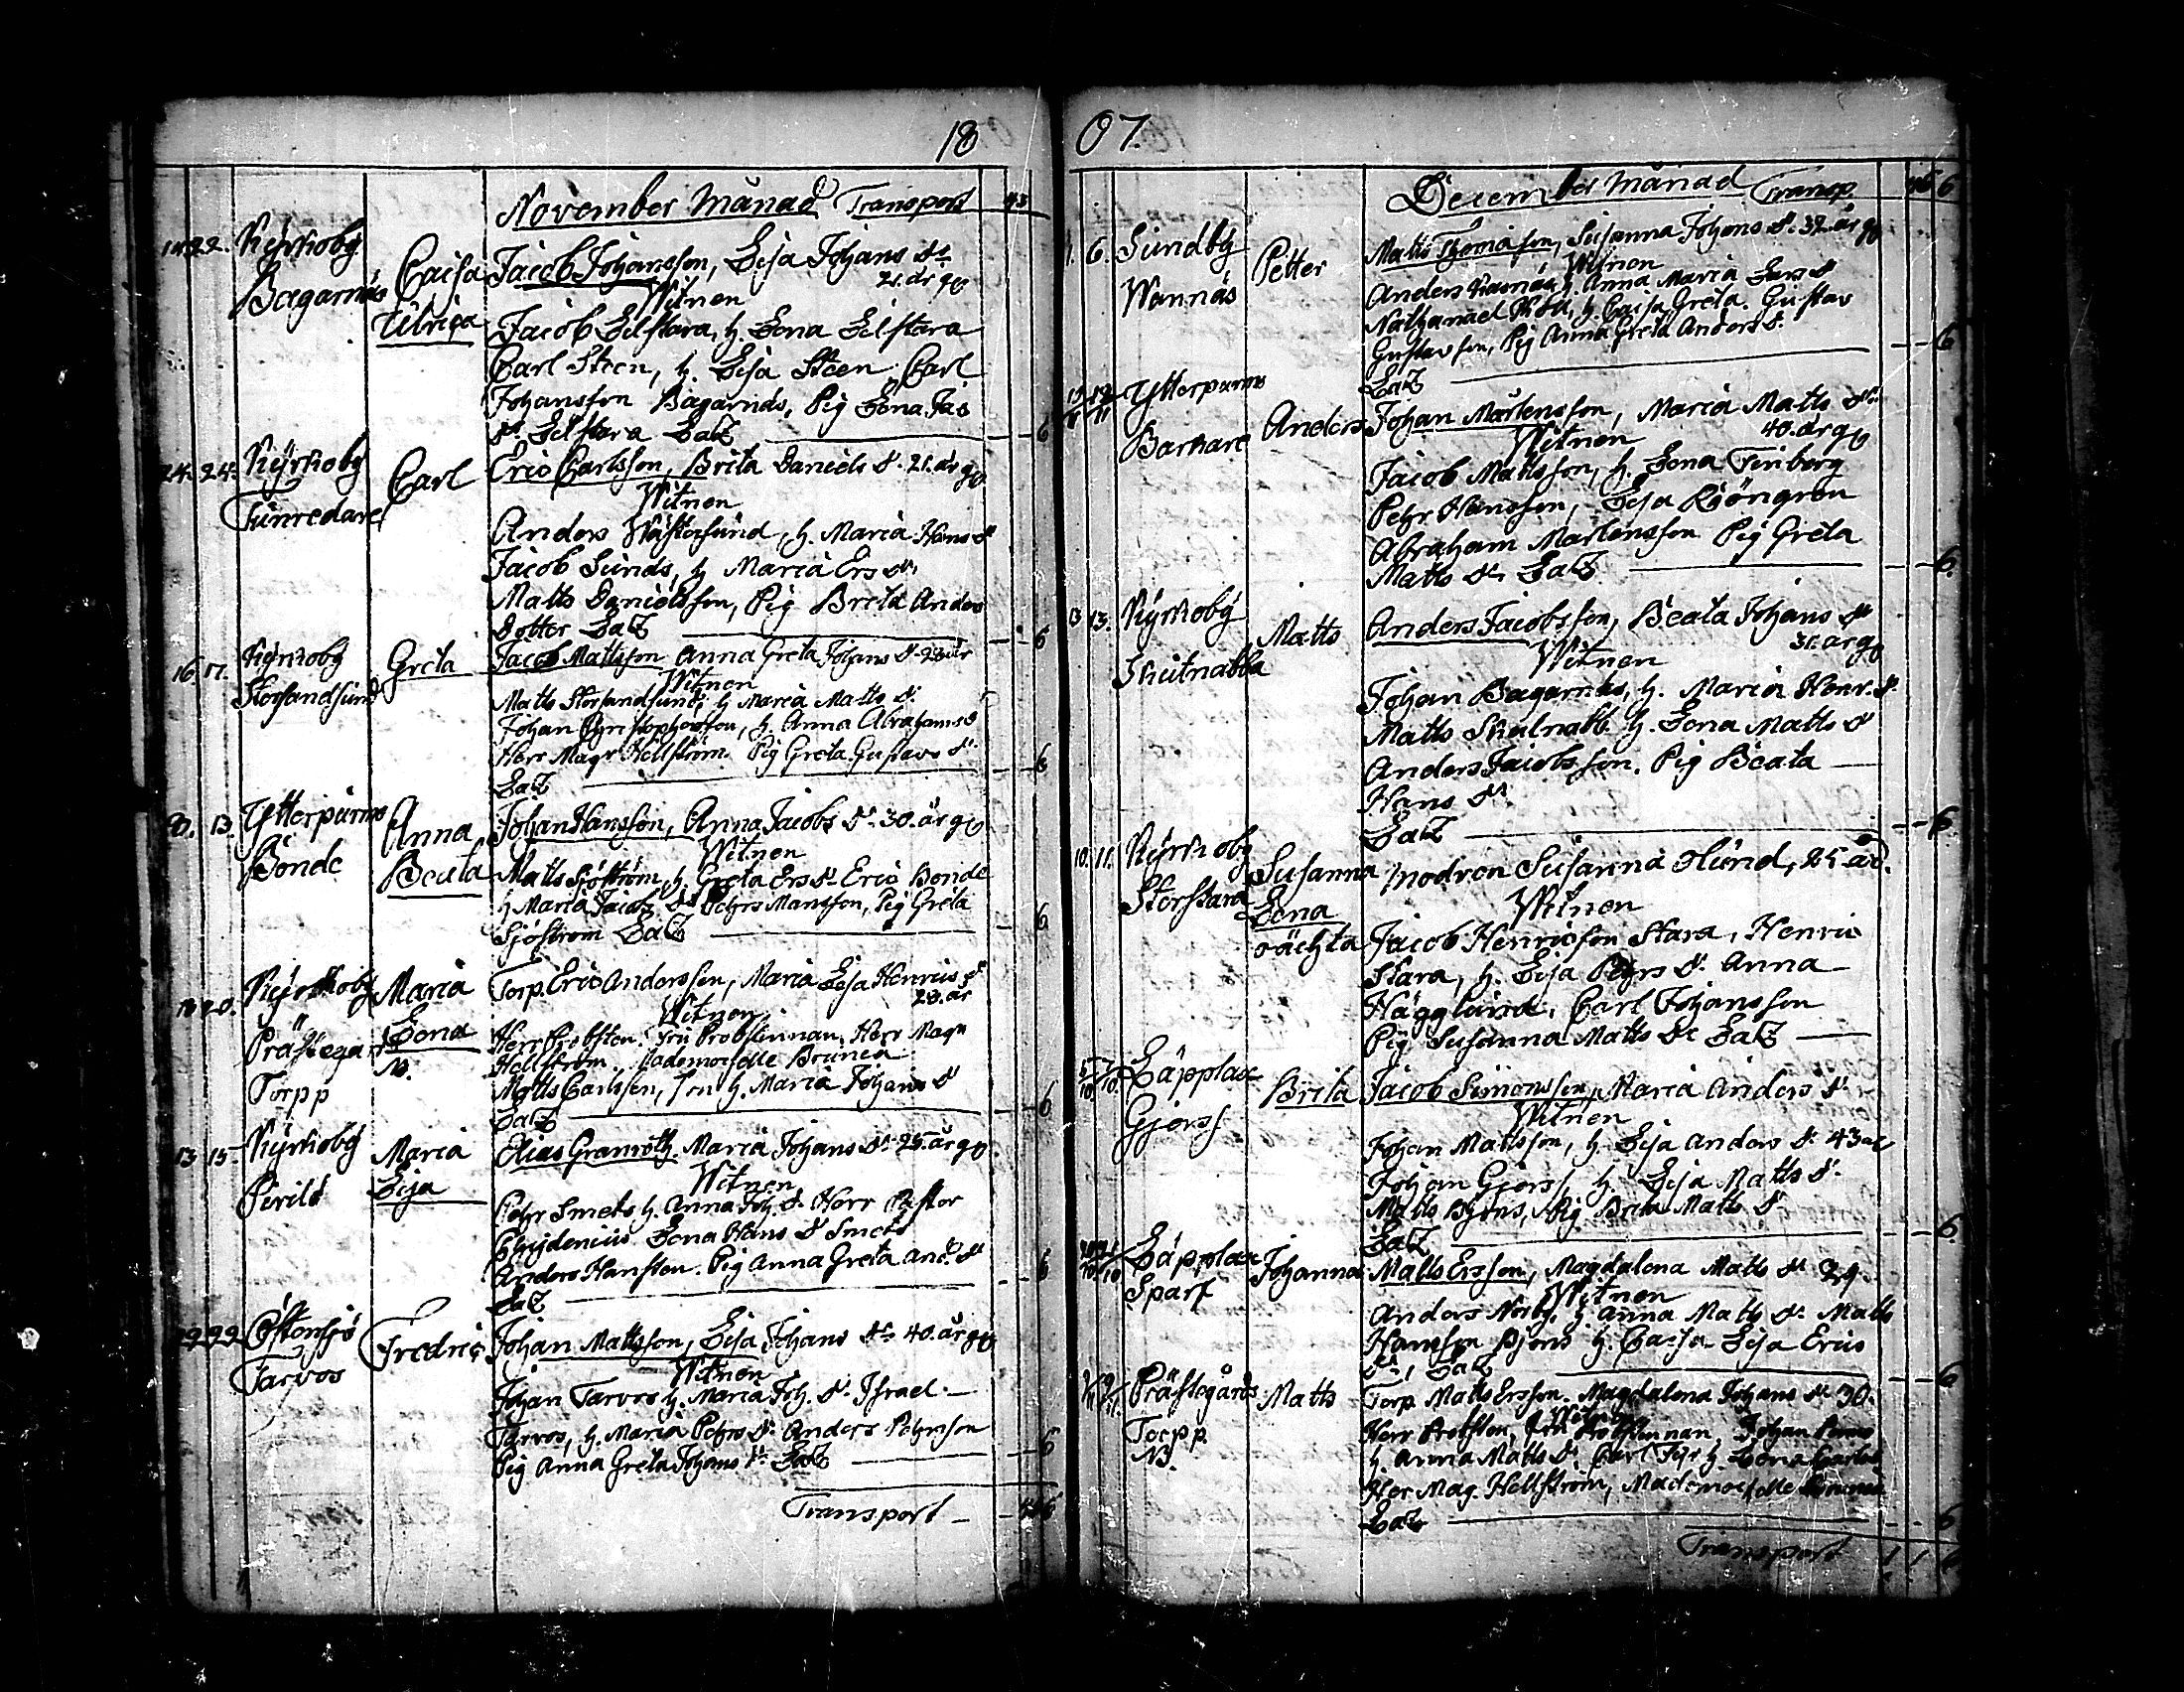 18
November Månad Transport 43
22. Kyrkoby Caisa Jacob Johansson, Lisa Johans dr
Bagarnäs Ulrica 21. år g
Witnen
Jacob Lilstara, h. Lena Lilstara
Carl Steen, h. Lisa Steen Carl
Johansson Bagarnäs, Pig Lena Jac
dr Lilstara 6
24. 24. Kyrkoby Carl Eric Carlsson, Brita Daniels d. 21. år g
Tünredare Witnen
Anders Wästersund, h. Maria Hans d
Jacob Sunds, h Maria Ers dr
Matts Danielsson, Pig Brita Anders
Dotter 6
16. 17. Kyrkoby Greta Jacob Mattsson Anna Greta Johans d. 28 år
Storsandsund Witnen
Matts Storsandsund, h Maria Matts d.
Johan Christophersson, h. Anna Abrahams d
Herr Magr Hellström Pig Greta Gustavs d.
6
13. Ytterpurmo Anna Johan Hansson, Anna Jacobs d. 30. år g
Bonde Beata Witnen
Matts Sjöström, h. Greta Ers dr Eric Bonde
h Maria Jacobs d Pehrs Mansson, Pig Greta
Sjöström 6
20. Kyrkoby Maria Torp. Eric Andersson, Maria Lisa Henrics d
Prästegårds Lena 28. år
Torpp N. Witnen
Herr Probsten, Fru Probstinnan, Herr Magr
Hellström. Mademoiselle
Matts Carlsson, h. Maria Johans d
6
13 15. Kyrkoby Maria Elias Granroth Maria Johans dr 25. år g
Perilö Lisa Witnen
Pehr Smeds h. Anna Joh. d. Herr Pastor
Chydenius Lena Hans d Smeds
Anders Hansson. Pig Anna Greta And. dr
6
22 22 Östensjö Fredric Johan Mattsson, Lisa Johans dr 40. år g
Tarvos Witnen
Johan Tarvos h. Maria Joh. d. Israel
Tarvos, h. Maria Pehrs d. Anders Pehrsson
Pig Anna Greta Johans dr 6
Transport
07.
December Månad Transp. 6
1. 6. Sundby Petter Matts Thomasson, Susanna Johans d. 32. år g
Wännäs Witnen
Anders h Anna Maria Lars d
Nathanael h. Caisa Greta. Gustav
Gustavsson, Pig Anna Greta Anders d.
6
Ytterpurmo Anders Johan Mårtensson, Maria Matts dr
Barkare Witnen 40. år g
Jacob Mattsson, h. Lena Finberg
Pehr Hansson, Lisa Kjöngren
Abraham Mårtensson Pig Greta
Matts dr 6.
13 13. Kyrkoby Matts Anders Jacobsson, Beata Johans dr
Skutnabba Witnen 31. år g
Johan Bagarnäs, h. Maria Henr. d.
Matts Skutnabb. h. Lena Matts d
Anders Jacobsson. Pig Beata
Hans dr.
6
10. 11. Kyrkoby Susanna modren Susanna Ölund, 25 år.
Storstara Lena Witnen
oächta Jacob Henricsson Stara, Henric
Stara, h. Lisa Pehrs d. Anna
Hägglund, Carl Johansson
Pig Susanna Matts Dr
Läpplax Brita Jacob Simonsson, Maria Anders dr
Gjers Witnen
Johan Mattsson, h. Lisa Anders d. 43 år
Johan Gjers h. Lisa Matts d.
Matts Björs, Pig Brita Matts d
6.
Läpplax Johanna Matts Ersson, Magdalena Matts dr 29.
Sparf Witnen
Anders Norby, h Anna Matts d. Matts
Hansson Björs h. Caisa Lisa Erics
dr 6
Prästegårds Matts Torp. Matts Ersson. Magdalena Johans dr 30.
Torpp Witnen
N. Herr Probsten, Fru Probstinnan, Johan
h. Anna Matts d. Carl h. Lena
Her Mag. Hellström, Mademoiselle
6
Transport 1 1 6